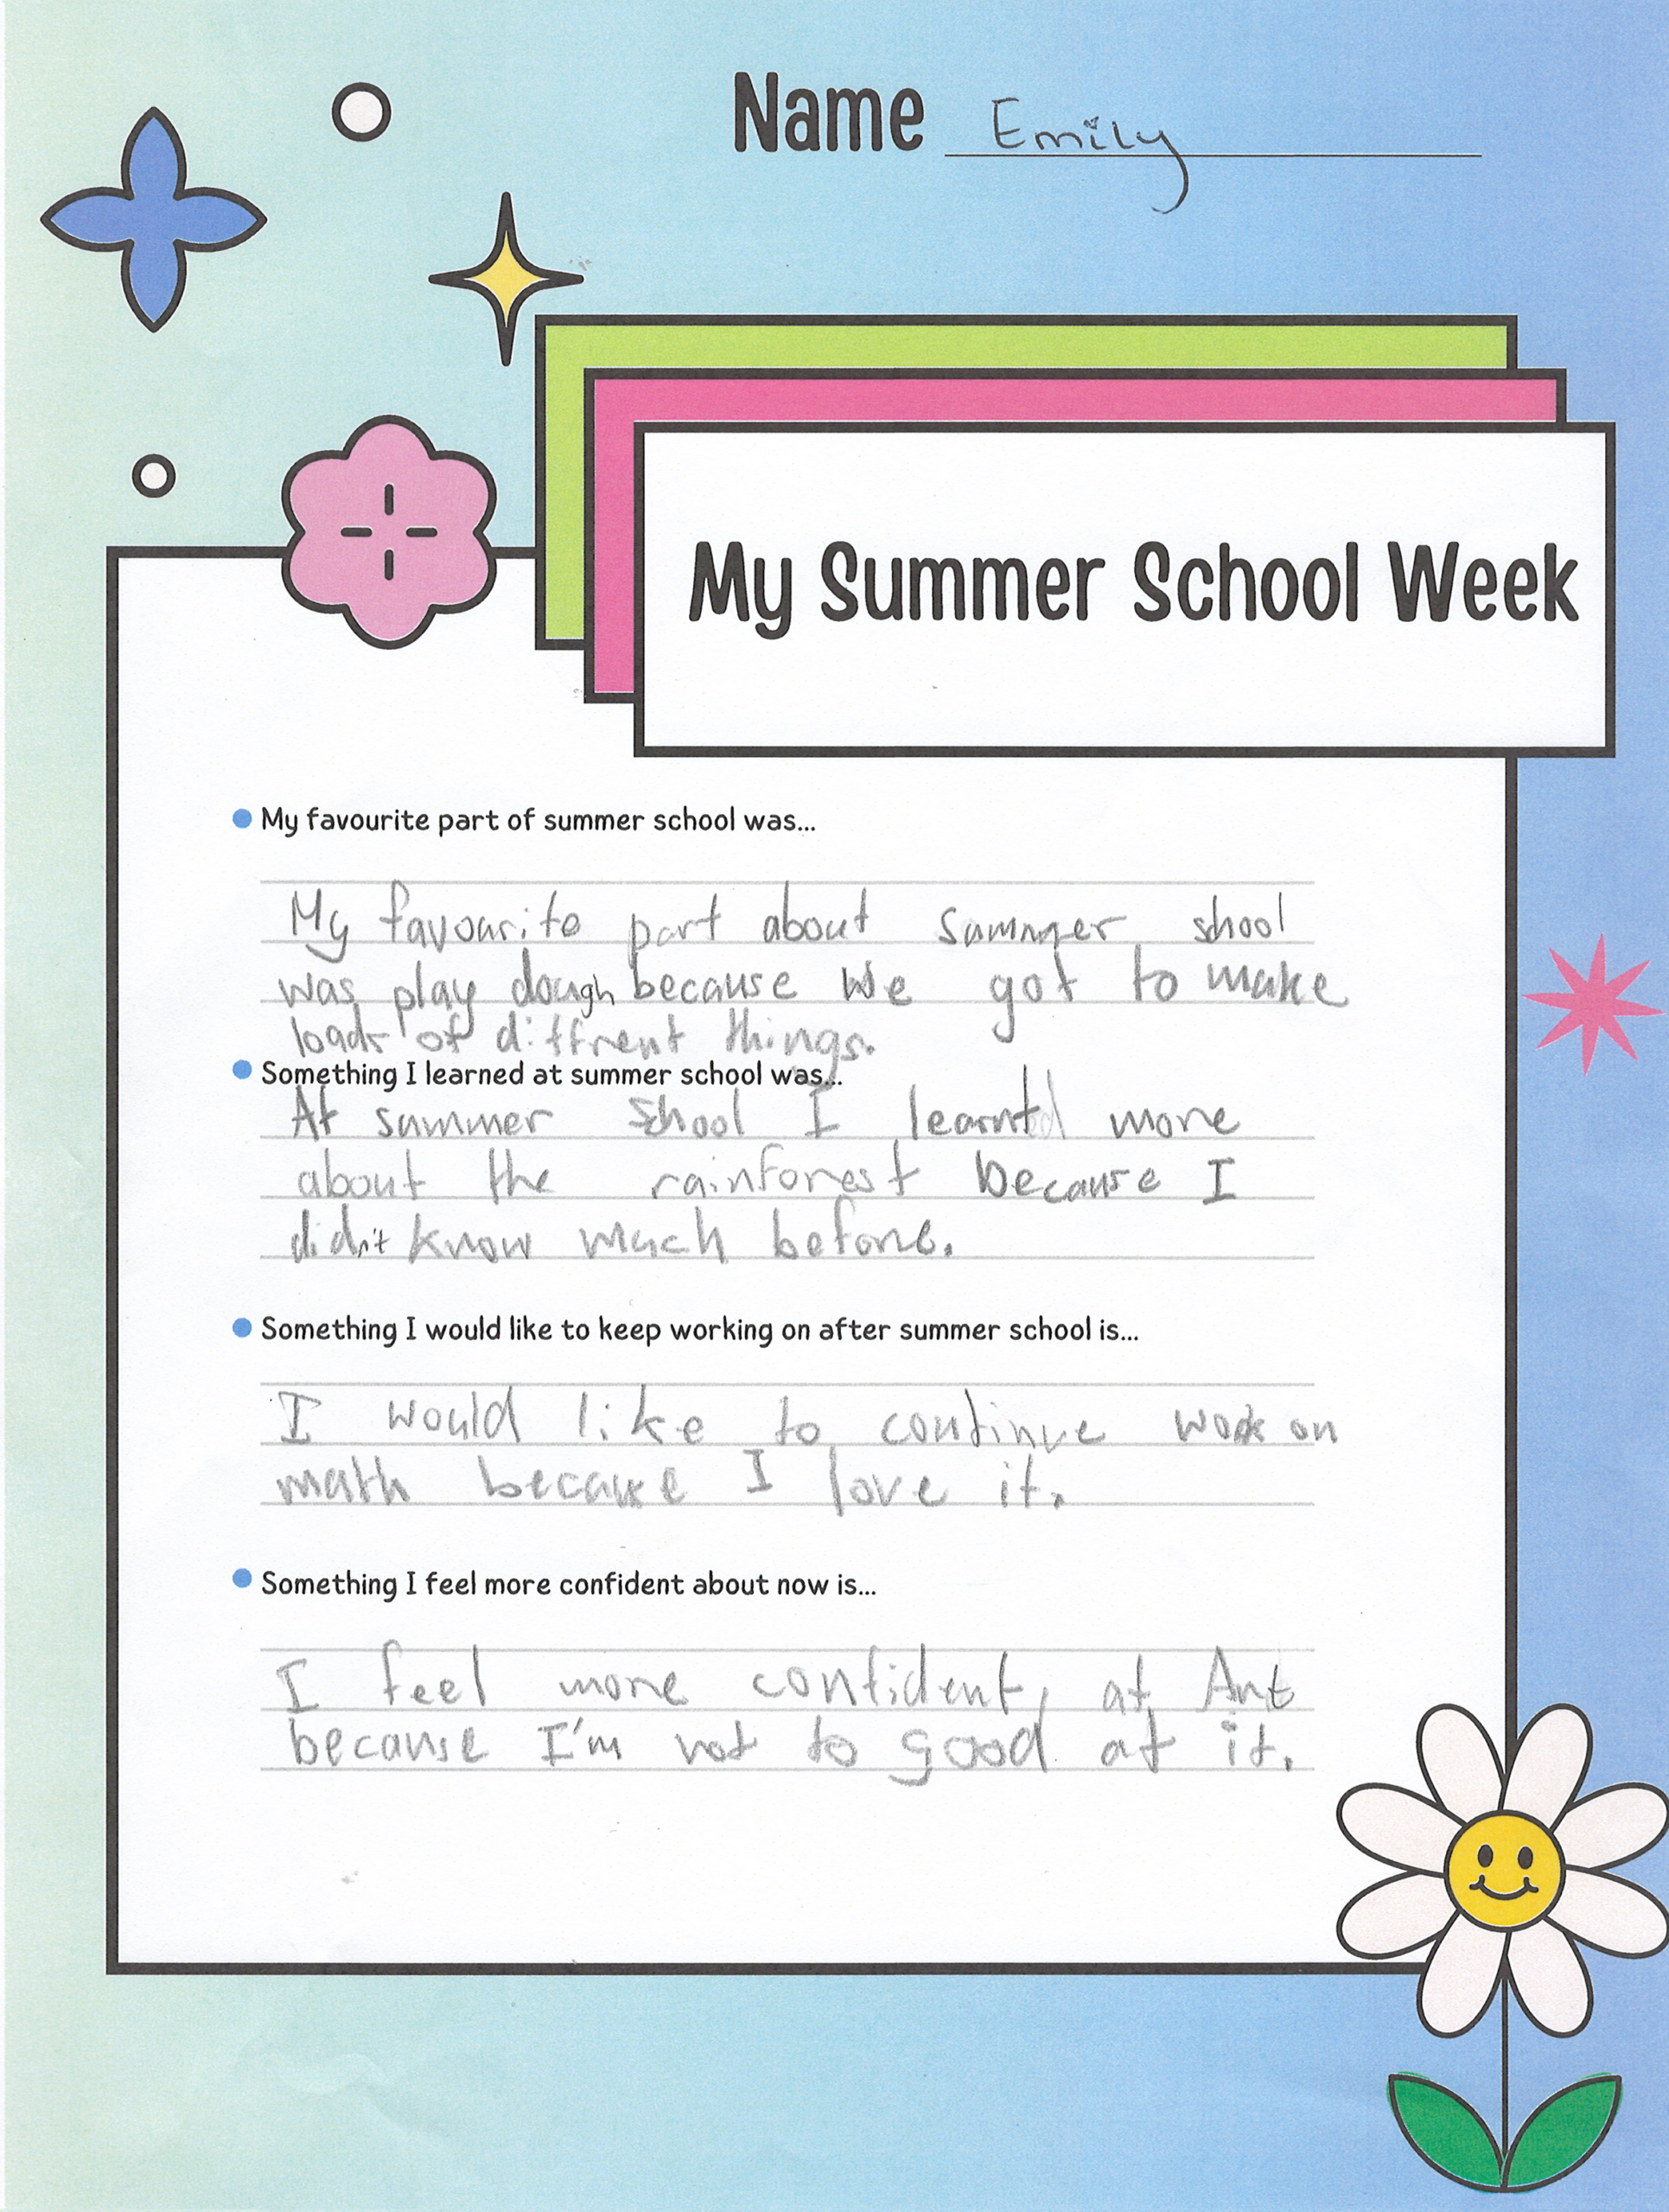 Name Emily
My Summer School Week
My favourite part of summer school was...
My favourite part about summer shool
was play dough because we got to make
loads of diffrent things.
Something I learned at summer school was...
At summer shool I learnt more
about the rainforest because I
didn't know much before.
Something I would like to keep working on after summer school is...
I would like to continue work on
math because I love it.
Something I feel more confident about now is...
I feel more confident at Art
because I'm not to good at it.